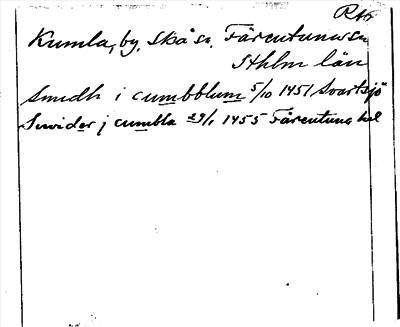 RA
Kumla, by, Skå sn, Färentuna sn
Sthlm län
Smidh i cumbblum 5/10 1451 Svartsjö
Swider j cumbla 29/1 1455 Färentuna hd